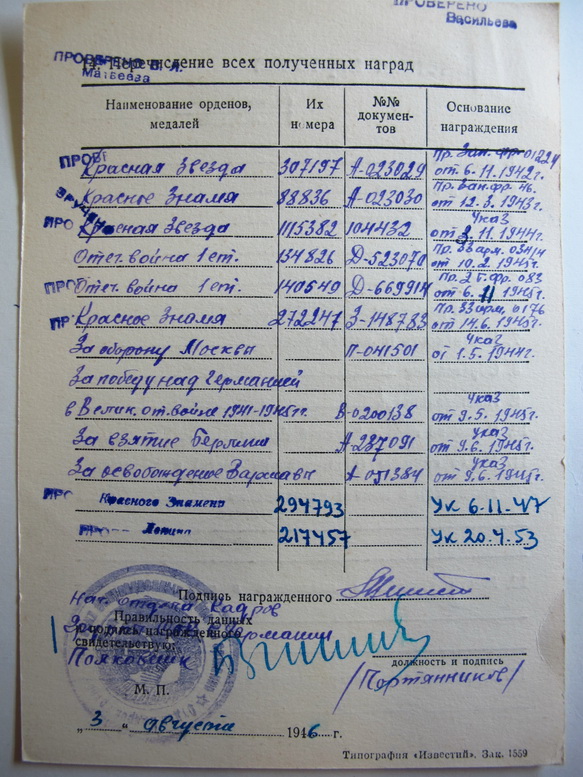 ПРОВЕРЕНО
Васильева
ПРОВЕРЕНО В. А.
Матвеева
14. Перечисление всех полученных наград
Наименование орденов, медалей
Их номера
№№ документов
Основание награждения
Красная Звезда 307197 А-023029 Пр. Зап. фр. 01224 от 6.11.1942г.
Красное Знамя 88836 А-023030 Пр. Зап. фр. 46. от 12.3.1943г.
Красная Звезда 1115382 104432 Указ от 3.11.1944г.
Отеч. война 1 ст. 134826 Д-523070 Пр. 33 арм. 03414 от 10.2.1945г.
Отеч. война 1 ст. 140640 Д-669914 Пр. 2 б. фр. 083 от 6.11.1945г.
Красное Знамя 272247 З-148783 Пр. 33 арм. 0176 от 14.6.1945г.
За оборону Москвы П-041501 Указ от 1.5.1944г.
За победу над Германией
в Велик. от. войне 1941-1945гг. В-0200138 Указ от 9.5.1945г.
За взятие Берлина А-237091 Указ от 9.6.1945г.
За освобождение Варшавы А-051384 Указ от 9.6.1945г.
Красного Знамени 294793 Ук 6.11.47
Ленина 217457 Ук 20.4.53
Подпись награжденного
Нач. отдела Кадров
Правильность данных
и подпись награжденного
Германии
свидетельствую:
Полковник
должность и подпись
/Портянников/
М. П.
„3„ августа 1946 г.
Типография «Известий». Зак. 1559